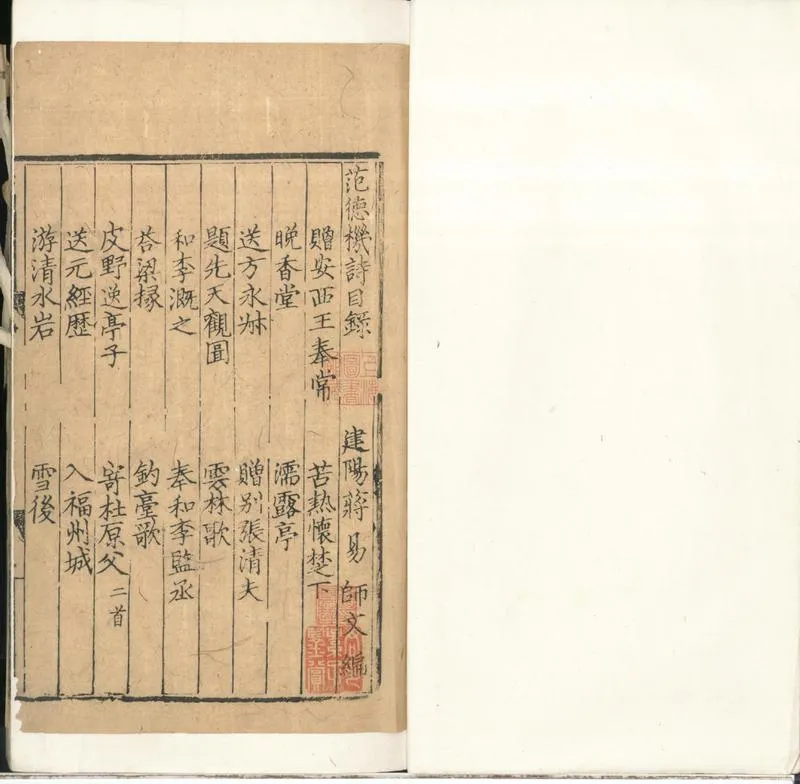 范德機詩目錄 建陽蔣易師文編
贈安西王奉常 苦熱懷楚下
晚香堂 濡露亭
送方永叔 贈别張清夫
題先天觀圖 雲林歌
和李溉之 奉和李監丞
荅梁掾 釣臺歌
皮野逸亭子 寄杜原父二首
送元經歷 入福州城
游清水岩 雪後